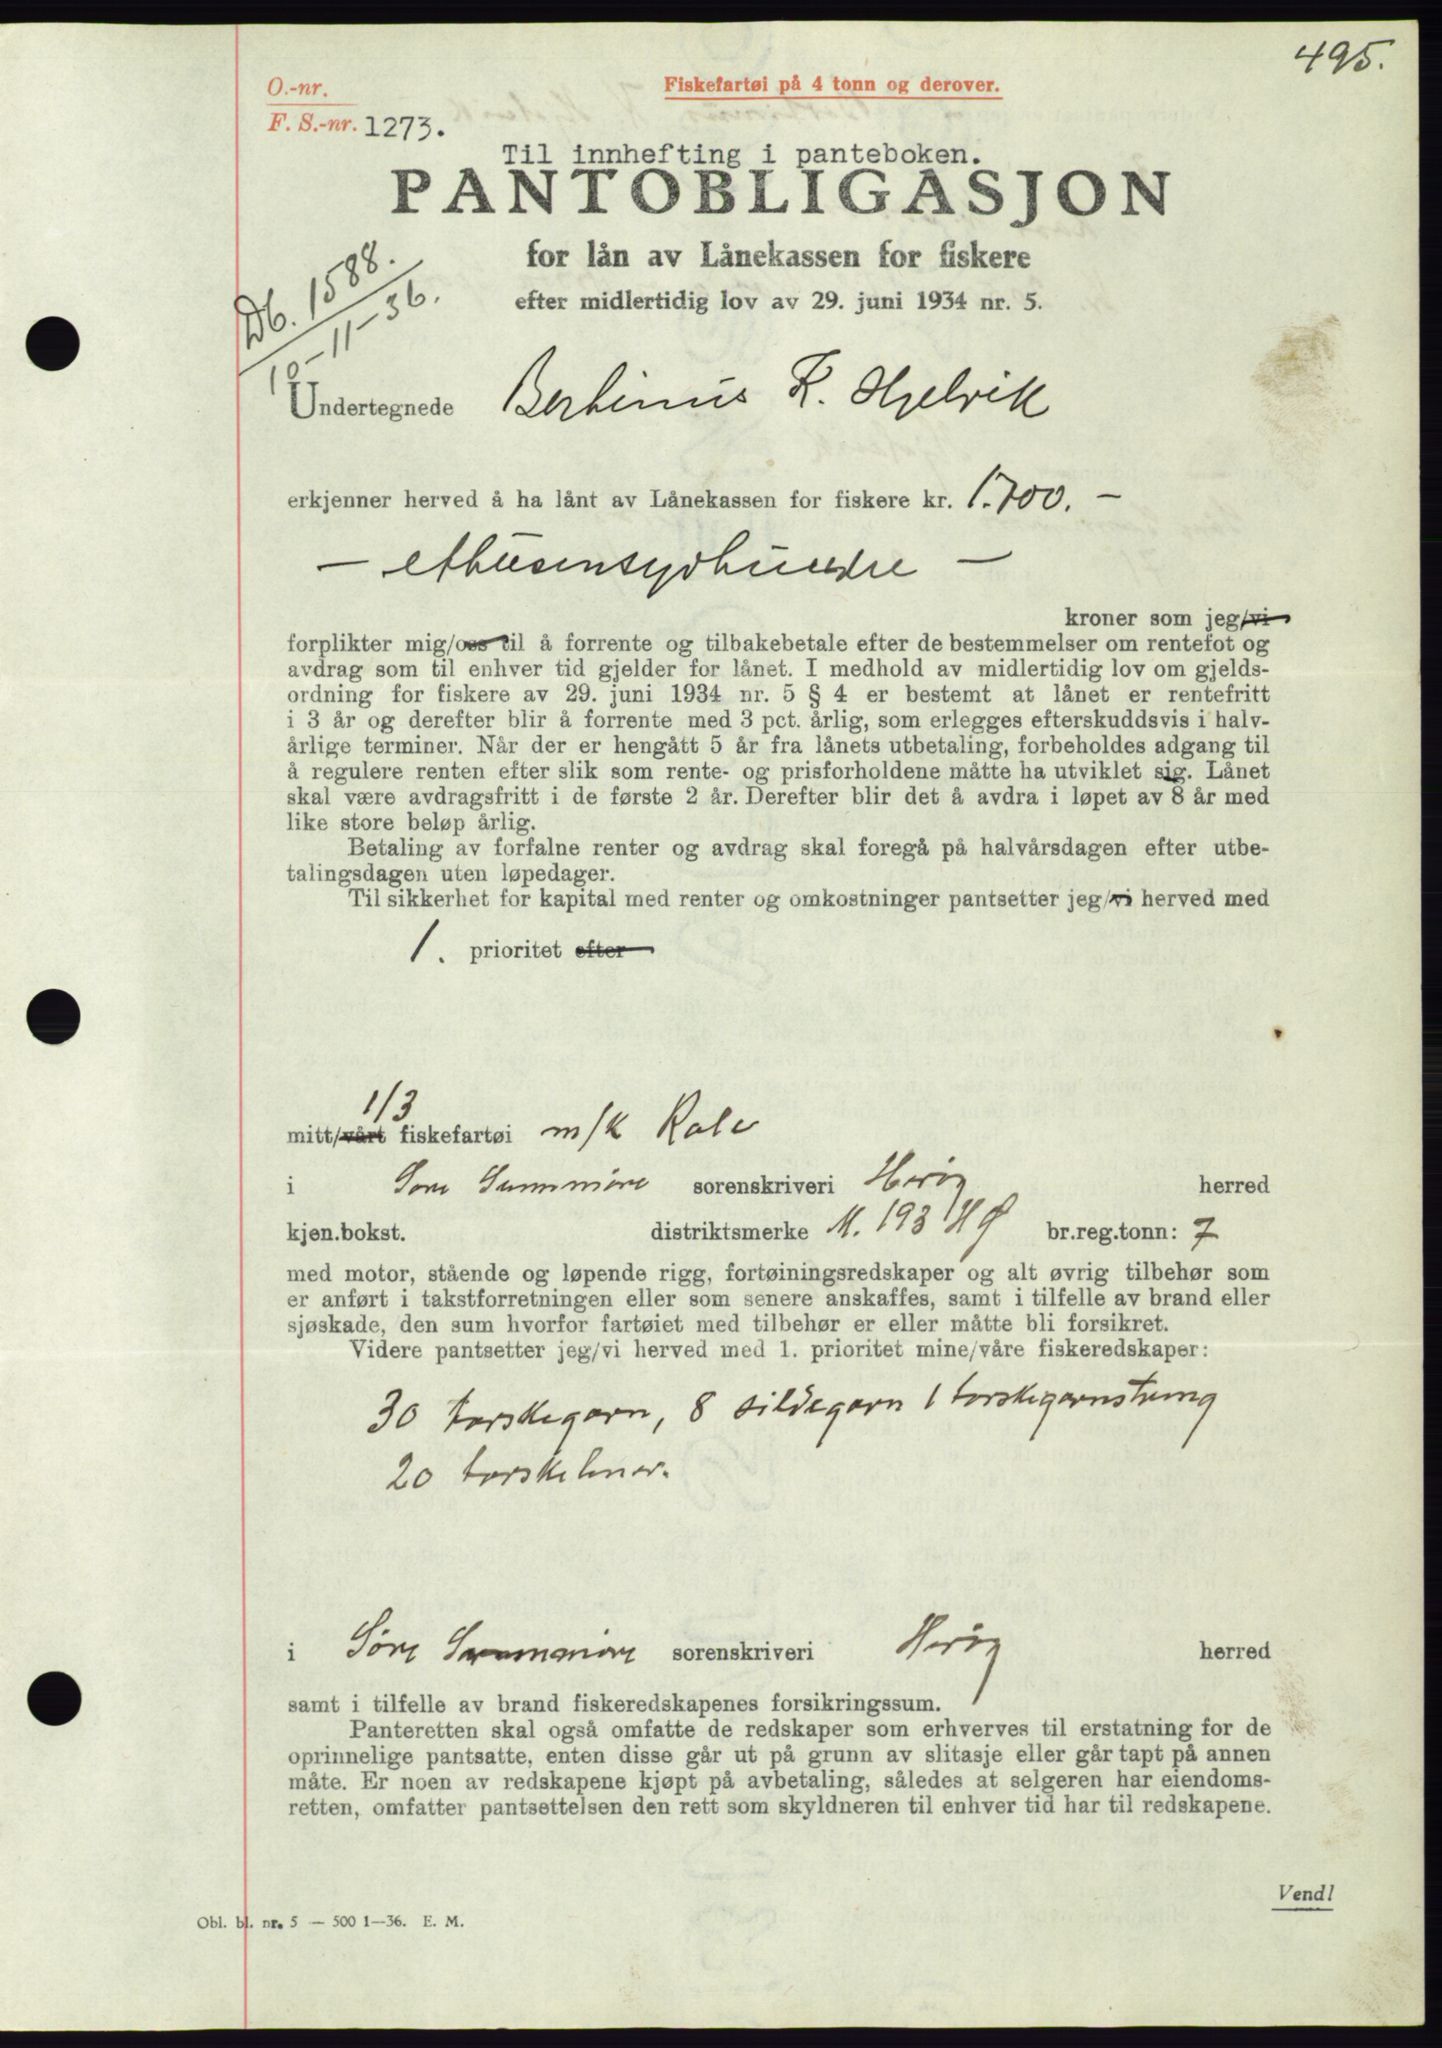 495.
O.-nr.
Fiskefartøi på 4 tonn og derover.
F. S.-nr. 1273.
Til innhefting i panteboken.
PANTOBLIGASJON
for lån av Lånekassen for fiskere
efter midlertidig lov av 29. juni 1934 nr. 5.
Db. 1588.
10-11-36.
Undertegnede Bertinus K. Hjelvik
erkjenner herved å ha lånt av Lånekassen for fiskere kr. 1.700. —
— ethusensyvhundre —
kroner som jeg/vi
forplikter mig/oss til å forrente og tilbakebetale efter de bestemmelser om rentefot og
avdrag som til enhver tid gjelder for lånet. I medhold av midlertidig lov om gjelds-
ordning for fiskere av 29. juni 1934 nr. 5 § 4 er bestemt at lånet er rentefritt
i 3 år og derefter blir å forrente med 3 pct. årlig, som erlegges efterskuddsvis i halv-
årlige terminer. Når der er hengått 5 år fra lånets utbetaling, forbeholdes adgang til
å regulere renten efter slik som rente- og prisforholdene måtte ha utviklet sig. Lånet
skal være avdragsfritt i de første 2 år. Derefter blir det å avdra i løpet av 8 år med
like store beløp årlig.
Betaling av forfalne renter og avdrag skal foregå på halvårsdagen efter utbe-
talingsdagen uten løpedager.
Til sikkerhet for kapital med renter og omkostninger pantsetter jeg/vi herved med
1. prioritet efter
1/3
mitt/vårt fiskefartøi m/k Kale
i Søre Sunnmøre sorenskriveri Herøy herred
kjen.bokst. distriktsmerke M. 193 HØ br.reg.tonn: 7
med motor, stående og løpende rigg, fortøiningsredskaper og alt øvrig tilbehør som
er anført i takstforretningen eller som senere anskaffes, samt i tilfelle av brand eller
sjøskade, den sum hvorfor fartøiet med tilbehør er eller måtte bli forsikret.
Videre pantsetter jeg/vi herved med 1. prioritet mine/våre fiskeredskaper:
30 torskegarn, 8 sildegarn 1 torskegarnstreng
20 torskeliner.
i Søre Sunnmøre sorenskriveri Herøy herred
samt i tilfelle av brand fiskeredskapenes forsikringssum.
Panteretten skal også omfatte de redskaper som erhverves til erstatning for de
oprinnelige pantsatte, enten disse går ut på grunn av slitasje eller går tapt på annen
måte. Er noen av redskapene kjøpt på avbetaling, således at selgeren har eiendoms-
retten, omfatter pantsettelsen den rett som skyldneren til enhver tid har til redskapene.
Vend!
Obl. bl. nr. 5 — 500 1—36. E. M.